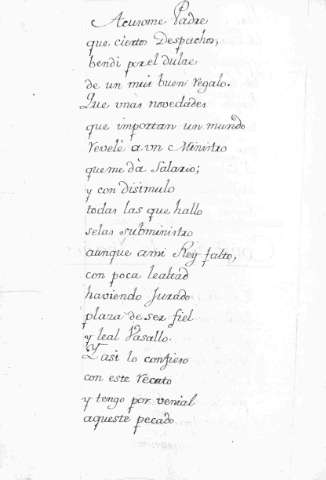 Acusome Padre
que ciertos Despachos,
bendi por el dulze
de un mui buen regalo.
Que unas novedades
que importan un mundo
revelè a vn Ministro
que me dà Salario;
y con disimulo
todas las que hallo
selas subministro
aunque a mi Rey falto,
con poca lealtad
haviendo Jurado
plaza de ser fiel
y leal Vasallo.
Y asi lo confieso
con este recato
y tengo por venial
aqueste pecado.